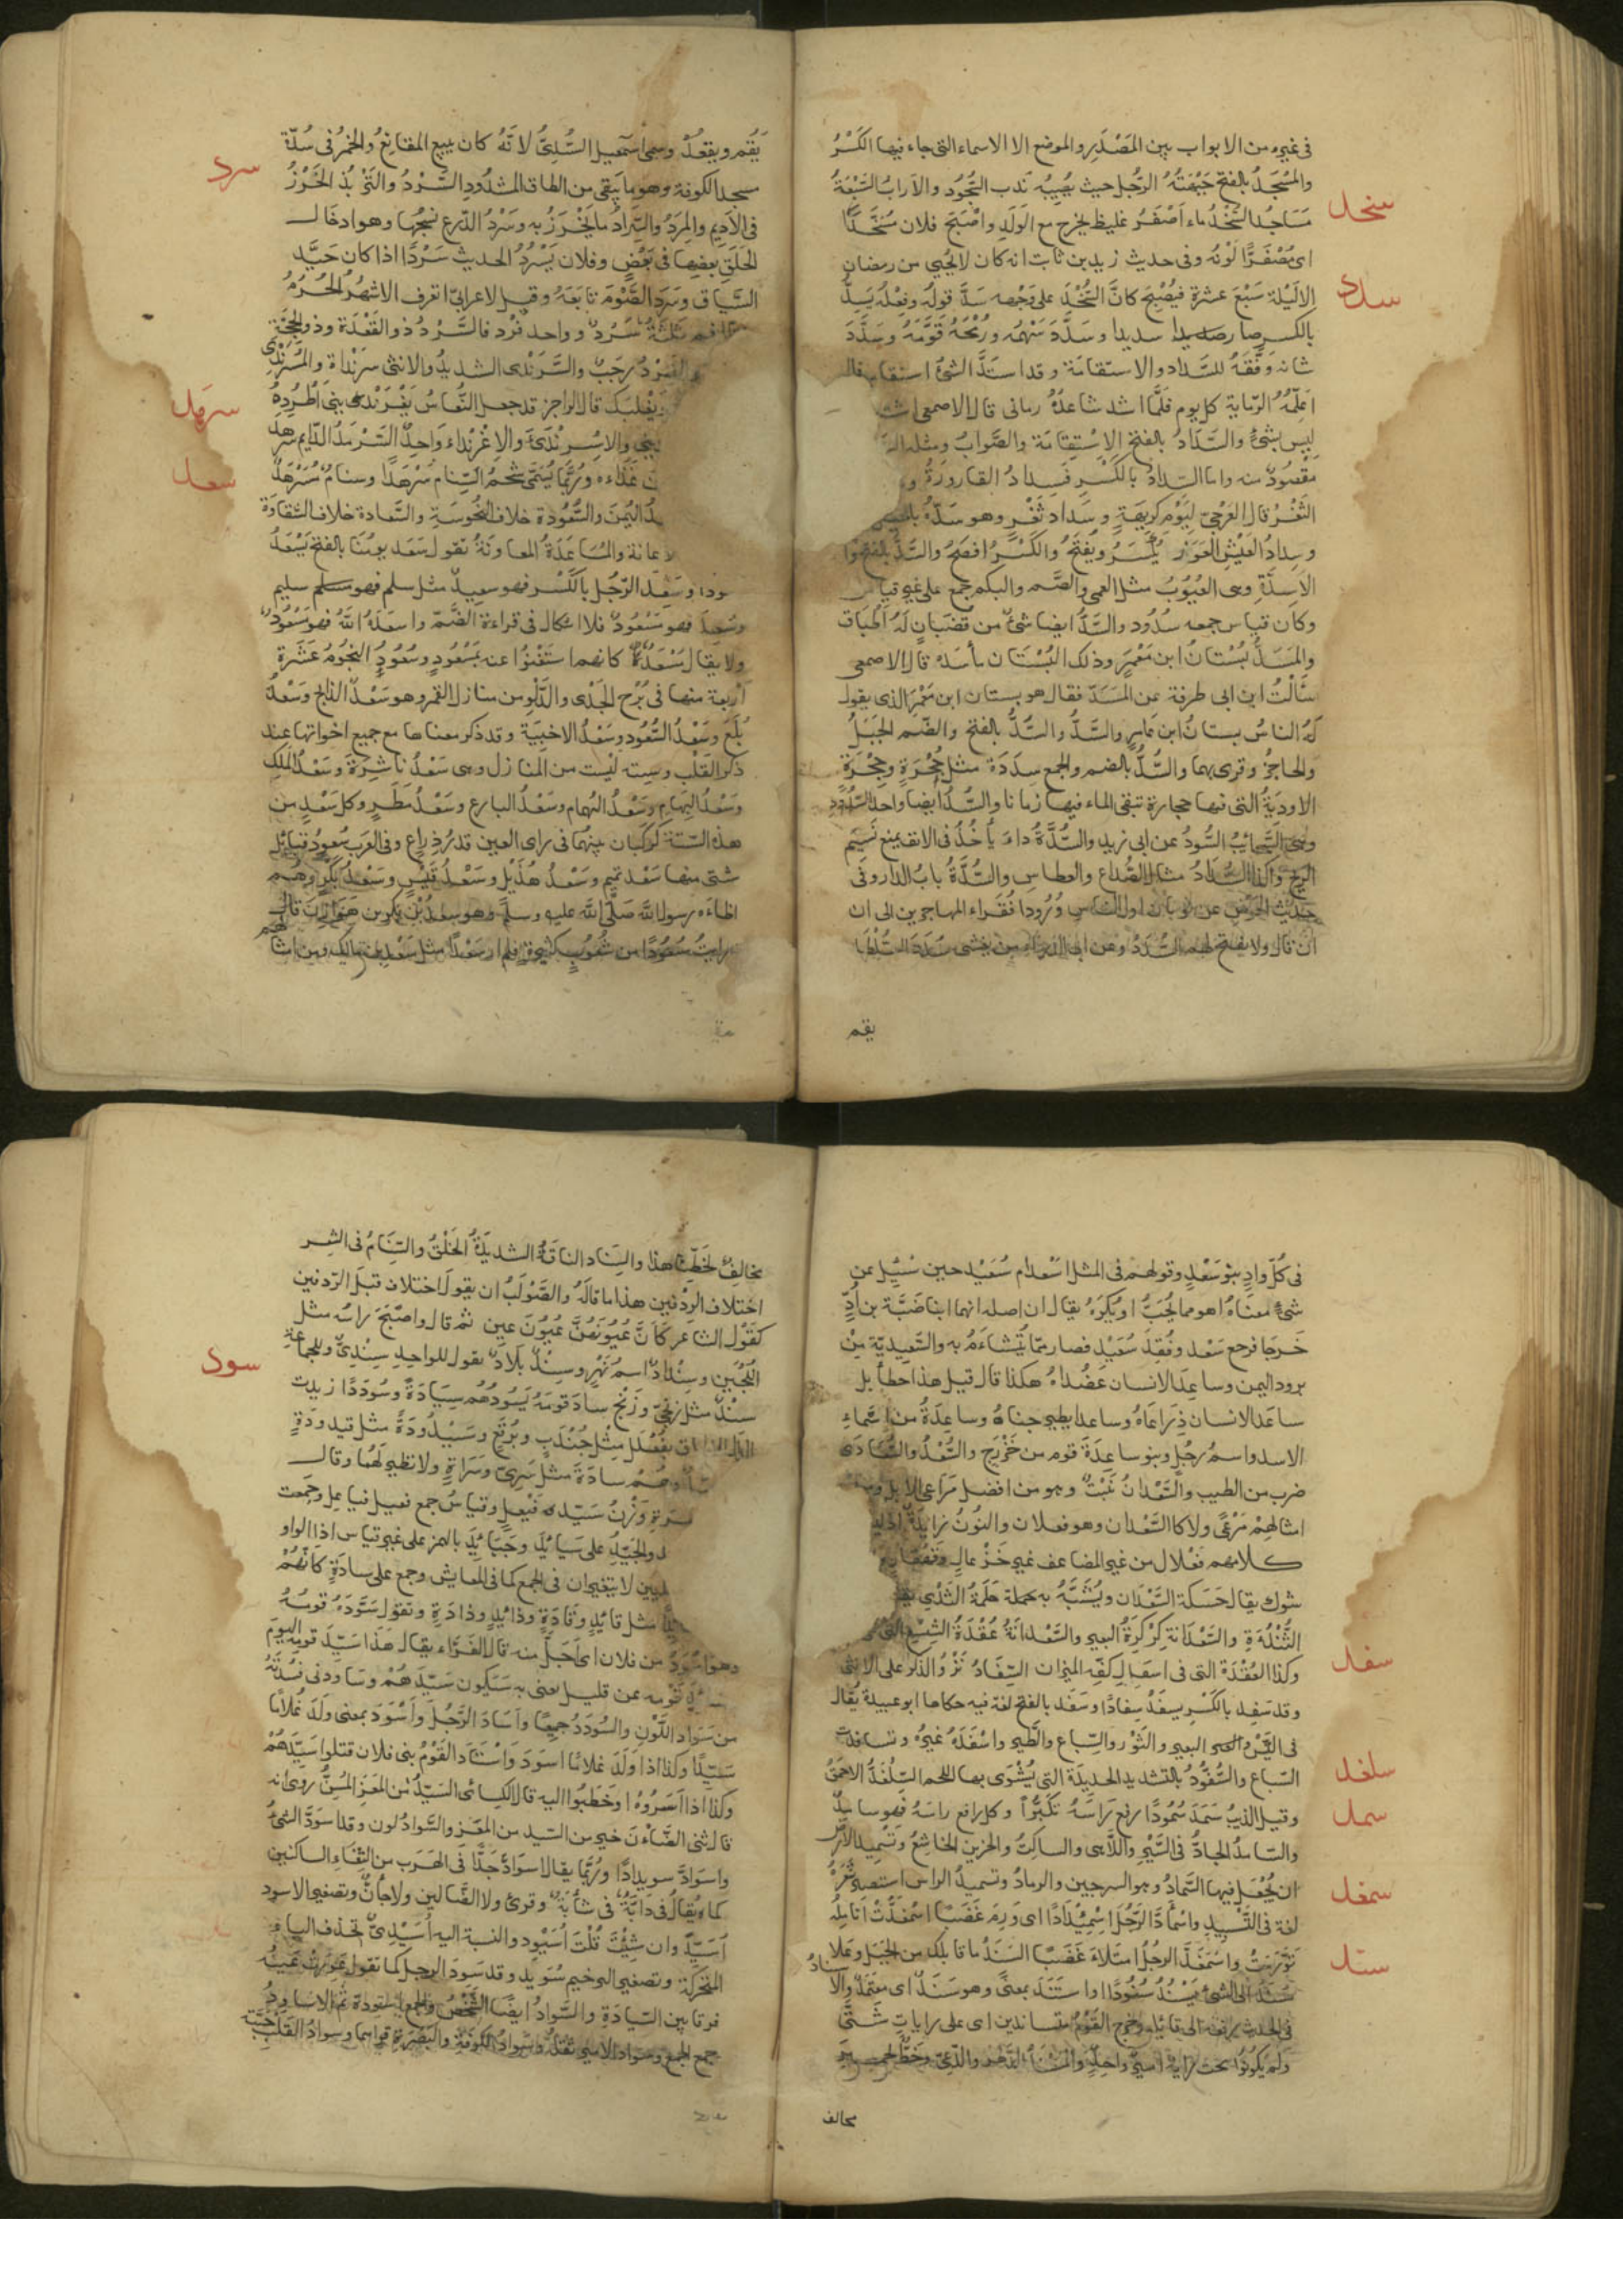 فى غيره من الابواب بين المَصْدَرِ والموضع الا الاسماء التى جاء فيها الكَسْرُ
والمَسْجَدُ بالفتح جَبْهَتُهُ الرَّجُل حيث يُصِيبُه نَدب السُّجُود والآرابُ السَّبْعَةُ
سخد
مَسَاجُد السُّخْدُ ماء اَصْفَرُ غليظ يخرج مع الوَلَدِ واَصْبَحَ فلان مُسَخَّدًا
اى مُصْفَرًّا لَوْنُه وفى حديث زيد بن ثابت انه كان لا يُحيى من رمضان
سدد
الا ليلة سَبْعَ عشرة فيُصْبِح كانَّ السُّخْدَ على وَجْهه سَدَّ قولُه وفِعْلُه يَسِدُّ
بالكسر صار سديدا وسَدَّدَ سَهْمَه ورُمْحَهُ قَوَّمَهُ وسَدَّدَ
شانه وَفَّقَهُ للسَّداد والاستقامَة وقد استَدَّ الشئ استقام قال
اُعَلِّمُهُ الرِّماية كل يوم فلَّما اشتد ساعدُهُ رمانى قال الاصمعى اشتد
ليس بشئ والسَّدَادُ بالفتح الاِسْتِقامَة والصَّوابُ ومثله
مقصُودٌ منه واما السِّدادُ بالكَسْرِ فسِدادُ القارورَةُ و
الثَغْرُ قال العَرْجِىّ ليَوْمِ كريهَةٍ وسِداد ثَغْرٍ وهو سَدّه
وسِدادُ العَيْشِ العَوَز يُكْسَرُ ويُفتَحُ والكَسْرُ افصَحُ والسَّدُّ بالفتح واحد
الاَسِدَّةِ وهى العُيُوبُ مثل العمى والصَّمم والبكم جمع على غير قياس
وكان قياس جمعه سُدُود والسَّدُّ ايضا شئٌ من قُضْبانٍ لَهُ أطْبَاق
والمَسَدُّ بُسْتانُ ابن مَعْمَرٍ وذلك البُسْتَان مأسَدَة قال الاصمعى
سَأَلْتُ ابن ابى طرفة عن المَسَدّ فقال هو بستان ابن مَعْمَرٍ الذى يقول
لَهُ الناسُ بستانُ ابن عَامِرٍ والسَّدُّ والسُّدُّ بالفتح والضَّم الجَبَلُ
والحاجزُ وقرى بهما والسُّدُّ بالضم والجمع سِدَدَة مثل جُحْرَةٍ وجِحْرَة
الاوديَةُ التى فيها حجارة تبقى الماء فيها زمانا والسُّدُّ ايضا واحد السُّدُودِ
وهى السَّحَائِبُ السُّودُ عن ابى زيد والسُّدَّةُ داء يَأْخُذُ فى الانف يمنع نَسِيَم
الريح وكذا السُّدَادُ مثل الصُّدَاع والعطاس والسُّدَّةُ بابُ الدار وفى
حديث الحَوْضِ عن ثوبان اول الناس وُرُودا فُقَراء المهاجرين الى ان
ان قال ولا يفتح لهم السُّدَدُ وعن ابى الدرداء من يغشى سُدَدَ السُّلْطَا
يقم
يَقُم ويقعُدْ وسمى اسمعيل السُّدِّىُّ لانَّهُ كان يبيع المقانِعَ والخُمُرَ فى سُدَّة
سرد
مسجد الكوفة وهو ما يَبْقى من الطاق المسْدُودِ السَّرْدُ والتَّسْرِيْدُ الخَرْزُ
فى الاَديمِ والمِسْرَدُ والسِّرَادُ ما يُخْرَزُ به وسَرْدُ الدِّرعِ نَسْجُها وهو ادخال
الحَلَقِ بعضِها فى بَعْضٍ وفلان يَسْرُدُ الحديث سَرْدًا اذا كان جَيِّد
السِّياق وسَرَدَ الصَّوْمَ تابَعَهُ وقيل لاعرابىّ اتعرف الاشهُرَ الحُرُمُ
فقال نعم ثلثَةٌ سَرْدٌ وواحد فَرْد فالسَّرْدُ ذو القَعْدَة وذو الحِجَّة
والفرد رَجَبٌ والسَّرَنْدى الشديدُ والانثى سَرَنْداة والمُسْرَنْدِى
سرهد
يَغْلِبُك قال الراجز قد جعل النُّعَاسُ يَغْرَنْدِى بنى اَطْرُدُهُ
والاِسْرِنْدَاءُ والاِغْرِنْداءُ وَاحِدٌ السَّرْمَدُ الدَّايم سرهد
سعد
غِذَاءَه ورُبَّما يُسَمَّى شَحْمُ السَّنام سَرْهَدًا وسنامٌ مُسَرْهَدٌ
اليُمْنَ والسُّعُودة خلاف النُحُوسَةِ والسَّعادة خلاف الشقاوَة
عانة والمُسَاعَدَةُ المعاونَةُ تقول سَعَد يومُنا بالفتح يَسْعَدُ
سعودا وسَعِدَ الرّجُل بالكَسْر فهو سعِيدٌ مثل سلم فهو سليم
وسُعِدَ فهو مَسْعُودٌ فلا اشكال فى قراءة الضَّمّ واسعَدَهُ اللّهُ فهو مَسْعُودٌ
ولا يقال مُسْعَدٌ كانهما ستَغْنَوْا عنه بمَسْعُودٍ وسُعُودٌ النجُوُمِ عَشْرَة
اربعة منها فى بُرْجِ الجَدْى والدَّلْوِ من منازل القمر وهو سَعْدٌ الذابح وسَعْدُ
بُلَعَ وسَعْدُ السُّعُود وسَعْدُ الاخبِيَة وقد ذكر معناها مع جميع اخواتها عند
ذكر القَلْب وسِتّه ليْست من المنازل وهى سَعْدُ ناشِرَةَ وسَعْدُ المَلِك
وسَعْدُ البِهَامِ وسَعْدُ الهُمام وسَعْدُ البارع وسَعْدُ مَطَرٍ وكل سَعْدٍ من
هذه السّتة كوكَبان بينهما فى راى العين قدرُ ذِراعٍ وفى العَرَب سُعُودُ قبائل
شتى منها سَعْد تميم وسَعْدُ هُذَيْل وسَعْدُ قَيْسٍ وسَعْدُ بَكْرٍ وهم
اظآءه رسول اللّه صَلَّى اللّه عليه وسلَّم وهو سعدُ بْن بكر بن هَوَازِنَ قال
رايتُ سُعُودًا من شُعُوبٍ كثيرةٍ فلم ار سَعْدًا مثل سَعْدِ بن مالك ومن امثالهم
فى كُلّ وادٍ بنو سَعْدٍ وقولهم فى المثل اسْعد ام سُعَيْد حين سُئِل عن
شئ معنَاهُ اهو مما يُحَبُّ او يُكْرَهُ يقال ان اصله انهما ابنا ضَبَّة بن اُدٍّ
خَرجَا فرجع سَعْد وفُقِدَ سُعَيْد فصار ممّا يُتَشاءَمُ به والسَّعِيديّة مِنْ
برود اليمن وساعِدَا الانسان عَضُداهُ هكذا قال قيل هذا خطأ بل
ساعَدا الانسان ذِراعَاهُ وساعدا الطير جناحاه وساعِدَةُ من اسْماءِ
الاسد واسمُ رجُلٍ وبنو ساعِدَةَ قوم من خَزْرَج والسُّعْدُ والسُّعَادَى
ضرب من الطيب والسَّعْدانُ نَبْتٌ وهو من افضل مَراعى الابل
امثالهِمْ مَرْعًى ولا كالسَّعْدانِ وهو فعلان والنونُ زايدةٌ
كلامهم فَعْلال من غير المضاعف غير خَزْعالٍ وقهقار
شوك يقال حَسَكَة السَّعْدان ويُشَبَّهُ به حَلَمَةُ الثَّدْى
الثَّنْدُوَةِ والسَّعْدانَة كِرْكِرَةُ البعير والسَّعْدانَةُ عُقْدَةُ الشِّسْع
سفد
وكذا العُقْدَة التى فى اسفل كفّه الميزان السِّفَادُ نَزْوُ الذكر على الانثى
وقد سَفِدَ بالكَسْرِ يسفَدُ سِفادًا وسَفَد بالفتح لغة فيه حكاها ابو عبيدة يُقال
فى التَّيْسِ والبعير والثَوْر والسِّباع والطَّير واسْفَدَهُ غيرُه وتسافدت
سلغد
السِّباع والسُّفُّودُ بالتشديد الحديدة التى يُشْوَى بها اللحم السِّلْغَدُّ الاحمَقُ
سمد
وقيل الذيبُ سَمَدَ سُمُودًا رفع رَاسَهُ تكَبُّرًا وكل رافع رَاسَهُ فهو سامدٌ
والسّامدُ الجادُّ فى السَّيْرِ واللَّاهى والساكِتُ والحزين الخاشِعُ وتَسْمِيدُ الارْض
سمغد
ان يُجْعَل فيها السَّمادُ وهو السرجين والرمادُ وتسميدُ الراس استئصالُ شَعْرِهِ
لغة فى التَّسْبِيدِ واسْمَأَدَّ الرَّجُلُ اسْمِئْدَادًا اى وَرِمَ غَضَبًا اسْمَغَدَّتْ انَامِلُهُ
سند
تَوَرَّمَتْ واسْمَغَدَّ الرجُلُ امتَلاءَ غَضَبًا السَنَدُ ما قابلك من الجَبَل وعلا
سَنَدَ الى الشئ يَسْنُدُ سُنُودًا واستَنَد بمعنًى وهو سَنَدٌ اى معتَمَدٌ والاسنادُ
فى الحديث رفعه الى قائله وخرج القَوْمُ متساندين اى على رايات شَتَّى
ولم يكُونُوا تحت راية امير واحِدٍ والمسند الدَّهْر والدَّعِىّ وخَطُّ حمير
مخالف
مخالِفٌ لخَطِّنا هذا والسِّنَاد النَاقَةُ الشديدَةُ الخَلْقِ والسِّنَادُ فى الشِعر
اختلاف الرِدْفَين هذا ما قالَهُ والصَّوَابُ ان يقول اختلاف قَبلَ الرِّدفين
كقَوْل الشاعر كَاَنَّ عُيُونَهُنَّ عُيُونَ عين ثم قال واصْبَحَ راسُه مثل
سود
اللُجَيْن وسِنْدادٌ اسم نَهْرٍ وسِنْدٌ بلادٌ تقول للواحد سِنْدِىٌّ وللجماعة
سِنْدٌ مثل زِنجىّ وزَنْج سادَ قومَهُ يَسُودُهُم سِيَادَةً وسُودَدًا زيدت
بفُعْلَل مِثْل جُنْدَبٍ وبُرْقعٍ وسَيْدُودَةً مثل قيدودَةٍ
وهُمْ سادَةٌ مثل سَرِىّ وسَرَاةٍ ولا نظير لَهُما وقال
وَزْنُ سَيّدٍ فَيْعِلٍ وقياسُ جمع فيعل فياعل وجمعت
والجَيّدُ على سَيَائِدَ وجَيَائِدَ بالهمز على غير قياس اذا الواو
لا يتغيران فى الجمع كما فى المعايش وجمع على سادَةٍ كانَّهُمْ
مثل قائدٍ وقَادَةٍ وذائِدٍ وذادَةٍ وتقول سَوَّدَهُ قومُهُ
وهو اسْوَدُ من فلان اى اَجَلُّ منه قال الفَرَّاء يقال هَذا سَيِّدُ قومِه اليَومَ
عن قليل يعنى به سَيَكون سَيِّدَهُمْ وساودنى فسُدتُهُ
من سَوَادِ اللَّوْنِ والسُودَدُ جميعًا واَسَادَ الرَّجُلُ واَسْوَدَ بمعنى ولَدَ غُلامًا
سَيّدًا وكذا اذا ولَدَ غلامًا اسودَ واسْتَادَ القَوْمُ بنى فلان قتلوا سَيّدهُمْ
وكذا اذا اَسَرُوهُ او خَطَبُوا اليه قال الكسائى السَيّدُ من المَعَزِ المُسِنُّ روى انه
قال ثنىّ الضَّأنِ خير من السيد من المعز والسَّوادُ لون وقد اسوَدَّ الشئُ
واسوَادَّ سويدادًا ورُبّما يقال اسوأدَّ جدًّا فى الهَرَب من التِقَاءِ الساكنين
كما يُقالُ فى دَابَّةٍ فى شابَّةٍ وقرئ ولا الضَّالين ولا جَأنٌّ وتصغير الاسود
اُسَيّد وان شِئْتَ قُلْتَ اُسَيْوِد والنسبة اليه اُسَيْدِىٌّ تحذف الياء
المتحركَة وتصغير الترخيم سُوَيد وقد سَوِدَ الرجل كما تقول عَوِرَتْ عَيْنُه
فرقا بين السيادَةِ والسَّوادُ ايضًا الشخص والجمع اسوِدَة ثم الاساوِدُ
جمع الجمع وسواد الامير ثَقَلُهُ وسَوادُ الكوفَةِ والبَصْرَةِ قراهما وسوادُ القَلْبِ حَبَّتُه